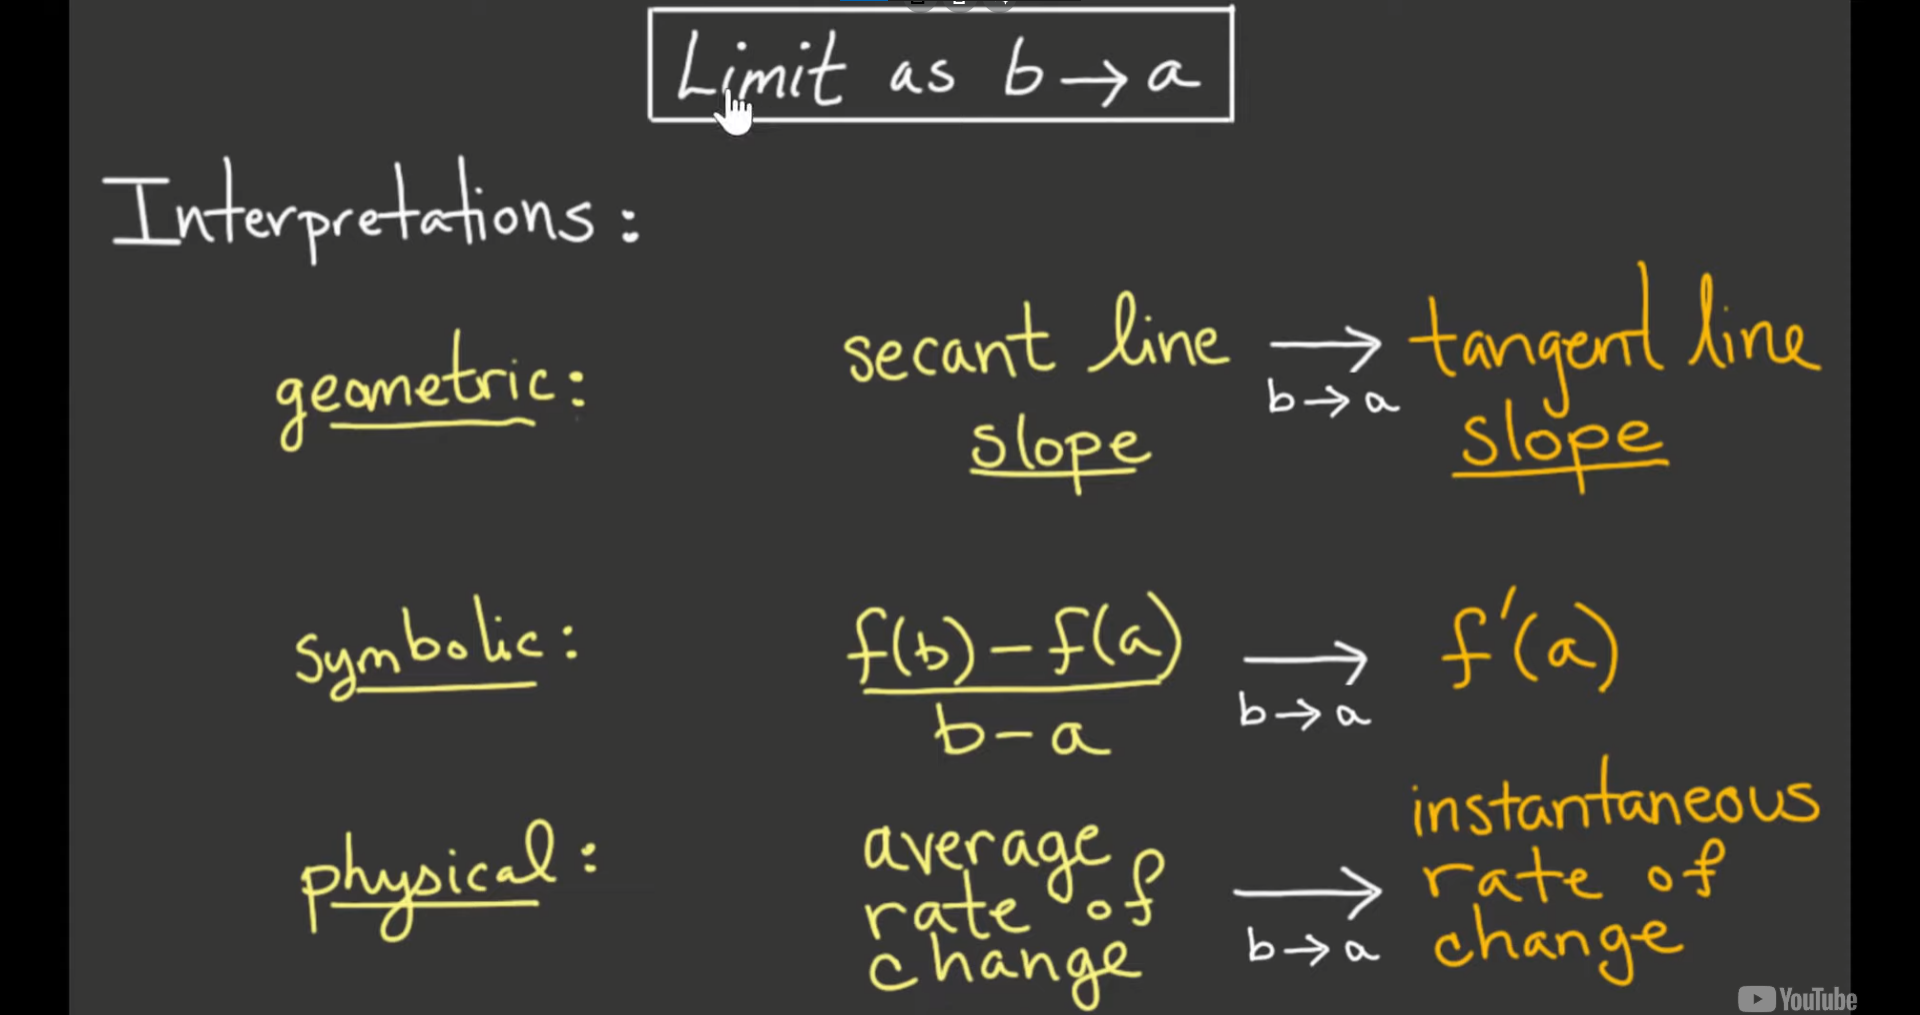 Limit as b → a
Interpretations:
geometric:
secant line
slope
→
b → a
tangent line
slope
symbolic:
f(b) - f(a)
b - a
→
b → a
f'(a)
physical:
average
rate of
change
→
b → a
instantaneous
rate of
change
YouTube